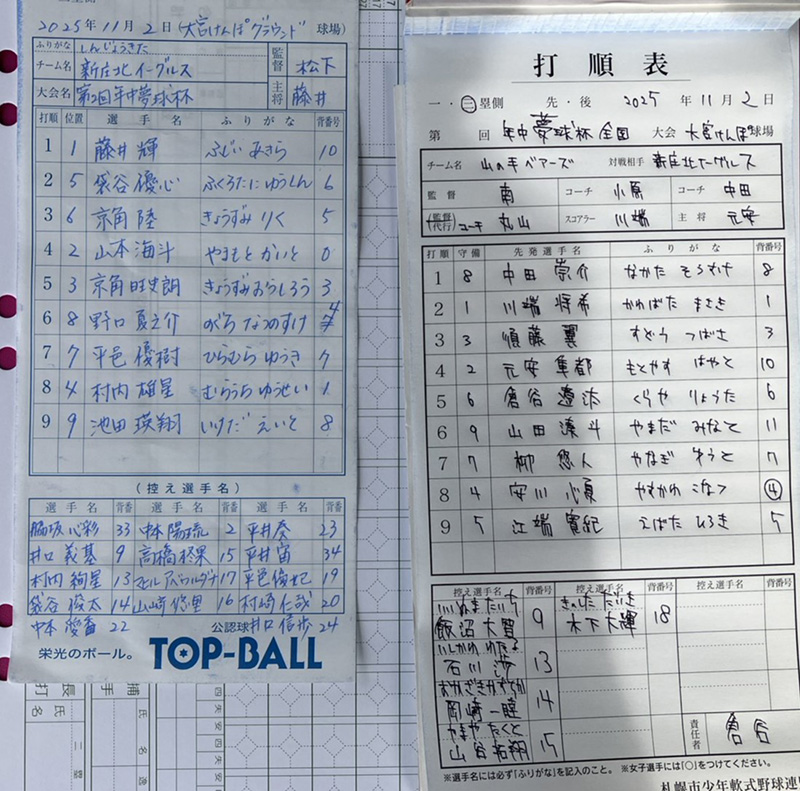 2025年11月2日(大宮けんぽグラウンド 球場)
ふりがな しんじょうきた
チーム名 新庄北イーグルス 監督 松下
大会名 第2回年中夢球杯 主将 藤井
打順 位置 選手名 ふりがな 背番号
1 1 藤井 輝 ふじい あきら 10
2 5 袋谷 優心 ふくろたに ゆうしん 6
3 6 京角 陸 きょうずみ りく 5
4 2 山本 海斗 やまもと かいと 0
5 3 京角 旺史朗 きょうずみ おうしろう 3
6 8 野口 夏之介 のぐち なつのすけ 4
7 7 平邑 優樹 ひらむら ゆうき 7
8 4 村内 雄星 むらうち ゆうせい 1
9 9 池田 瑛翔 いけだ えいと 8
(控え選手名)
選手名 背番 選手名 背番 選手名 背番
脇坂 心彩 33 中本 陽琉 2 平井 奏 23
井口 義基 9 高橋 15 平井 宙 34
村内 絢星 13 17 平邑 俊妃 19
袋谷 俊太 14 山崎 悠里 16 村崎 仁哉 20
中本 愛 22 公認球 井口 信歩 24
栄光のボール。 TOP-BALL
打順表
一・二塁側 先・後 2025年11月2日
第 回 年中夢球杯 全国 大会 大宮けんぽ球場
チーム名 山の手ベアーズ 対戦相手 新庄北イーグルス
監督 南 コーチ 小原 コーチ 中田
(監督代行) コーチ 丸山 スコアラー 川端 主将 元安
打順 守備 先発選手名 ふりがな 背番号
1 8 中田 崇介 なかた そうすけ 8
2 1 川端 将希 かわばた まさき 1
3 3 須藤 翼 すどう つばさ 3
4 2 元安 隼都 もとやす はやと 10
5 6 倉谷 遼汰 くらや りょうた 6
6 9 山田 湊斗 やまだ みなと 11
7 7 柳 悠人 やなぎ ゆうと 7
8 4 安川 心夏 やすかわ こなつ ④
9 5 江端 寛紀 えばた ひろき 5
控え選手名 背番号 控え選手名 背番号 控え選手名
いいぬまたいち きのしただいき
飯沼 大智 9 木下 大輝 18
いしかわ わたる
石川 渉 13
おかざきかずちか
岡崎 一睦 14
やまや たくと
山谷 拓翔 15
責任者 倉谷
※選手名には必ず「ふりがな」を記入のこと。 ※女子選手には「〇」をつけてください。
札幌市少年軟式野球連